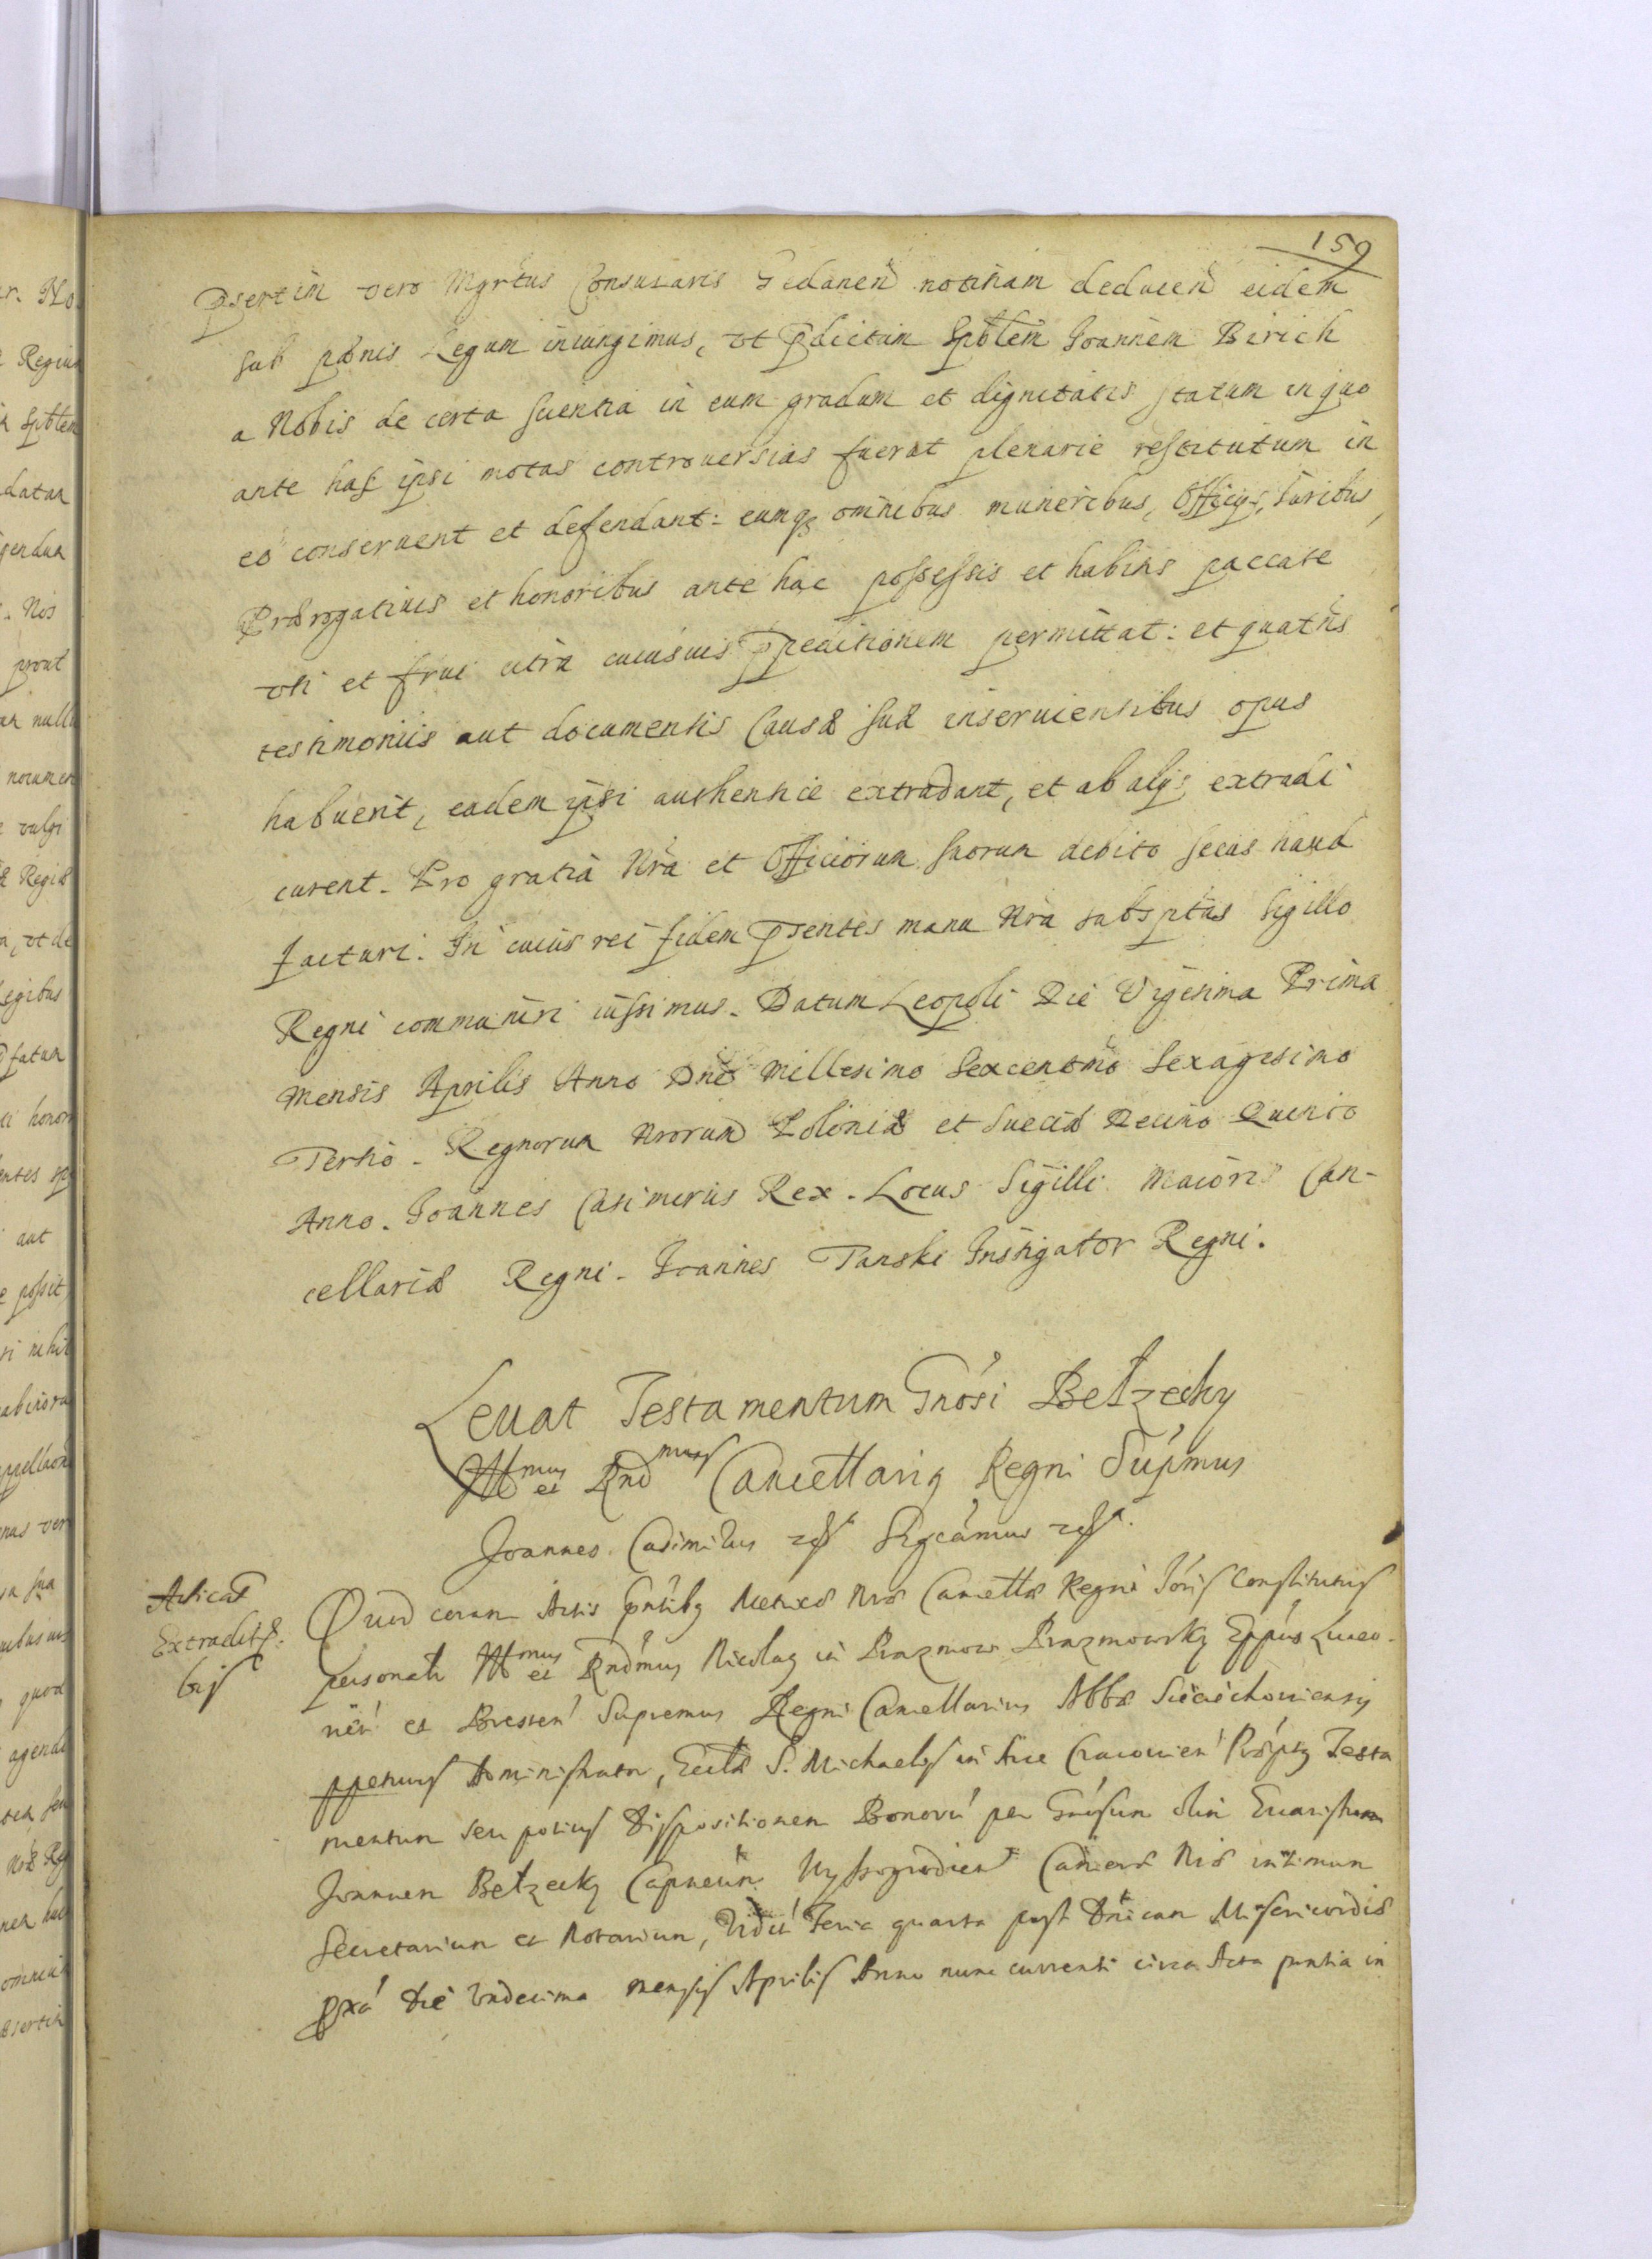 159
Psertim vero Mgrtus Consularis Gedanen notitiam deducen eidem
sub pœnis Legum iniungimus, vt pdictum Spblem Joannem Birich
a Nobis de certa scientia in eum gradum et dignitatis statum in quo
ante has ipsi motas controuersias fuerat plenarie restitutum in
eo conseruent et defendant: eumq omnibus muneribus, Officijs, Iuribus,
Prærogatiuis et honoribus ante hac possessis et habitis paccate
vti et frui citra cuiusuis ppeditionem permittat: et quatus
testimoniis aut documentis Causæ suæ inseruientibus opus
habuerit, eadem ipsi authentice extradant, et ab alijs extradi
curent. Pro gratia Nra et Officiorum suorum debito secus haud
facturi. In cuius rei fidem psentes manu Nra subsptas Sigillo
Regni communiri iussimus. Datum Leopoli Die Vigesima Prima
Mensis Aprilis Anno Dni Millesimo Sexcentmo Sexagesimo
Tertio. Regnorum Nrorum Poloniæ et Sueciæ Decimo Quinto
Anno. Joannes Casimirus Rex. Locus Sigilli Maioris Can-
cellariæ Regni. Joannes Tanski Instigator Regni.
Leuat Testamentum Gnosi Bełzecky
Illmus et Rndmus Cancellarig Regni Supmus
Joannes Casimirus
Extradits.
Quod coram Actis Pntibg Metrices Nræ Cancellæ Regni Constitutus
personalr Illmus et Rndmus Nicolag in Prazmow Prazmowsky Eppus Luceo-
rien et Bresten Supremus Regni Cancellarius Abbæ Sieciechouiensis
ppetuus Administrator, Ecclæ S. Michaelis in Arce Cracouien Testa
mentum seu potius Dispositionem Bonoru per Gnosum olim Euaristum
Joannem Bełzecky Capneum Cancriæ Nræ intimum
Secretarium et Notarium, Feria quarta post Dnicam Misericordiæ
pxa Die Vndecima mensis Aprilis Anno nunc currenti circa Acta pntia in